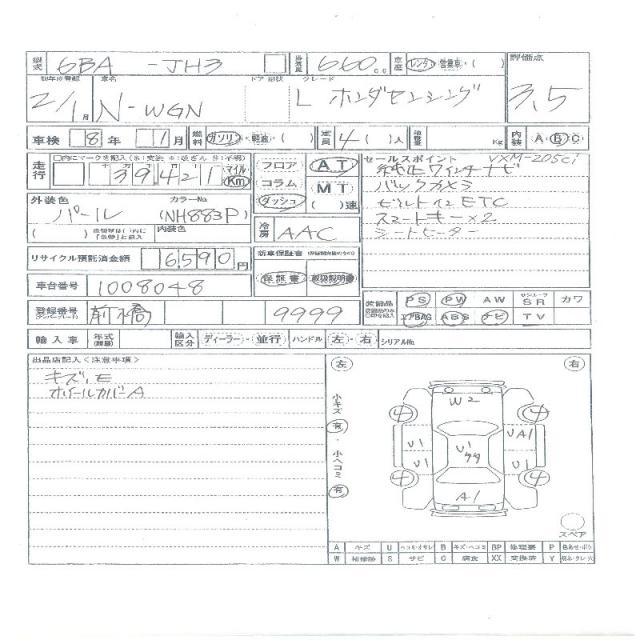 型式 6BA -JH3 排気量 660 cc 車歴 レンタ・営業車・( ) 評価点
初年度登録 車名 ドア 形状 グレード
2/1月 N-WGN L ホンダセンシング 3,5
車検 8年 1月 燃料 ガソリン・軽油・( ) 定員 4( )人 積載量 Kg 内装 A B C
走行 39,421 マイル Km フロア AT セールスポイント VXM-205ci
コラム MT 純正ワイドナビ
ダッシュ ( )速 バックカメラ
外装色 カラーNo ビルトインETC
パール (NH883P) 冷房 AAC スマートキー×2
内装色 シートヒーター
リサイクル預託済金額 6590円 新車保証書
車台番号 1008048 保証書 取扱説明書
登録番号 前橋 9999 装備品 PS PW AW サンルーフ SR カワ
エアBAG ABS ナビ TV
輸入車 年式 輸入区分 ディーラー・並行 ハンドル 左・右 シリアルNo.
出品店記入〈注意事項〉 左 右
キズ,E
ホイールカバーA
小キズ 有・小ヘコミ 有
W2
4 4
U1 UA1
U1
U1 U1
4 4
A1
スペア
A キズ U B キズ・ヘコミ BP 修理要 P
W 補修跡 S サビ C 腐食 XX 交換済 Y